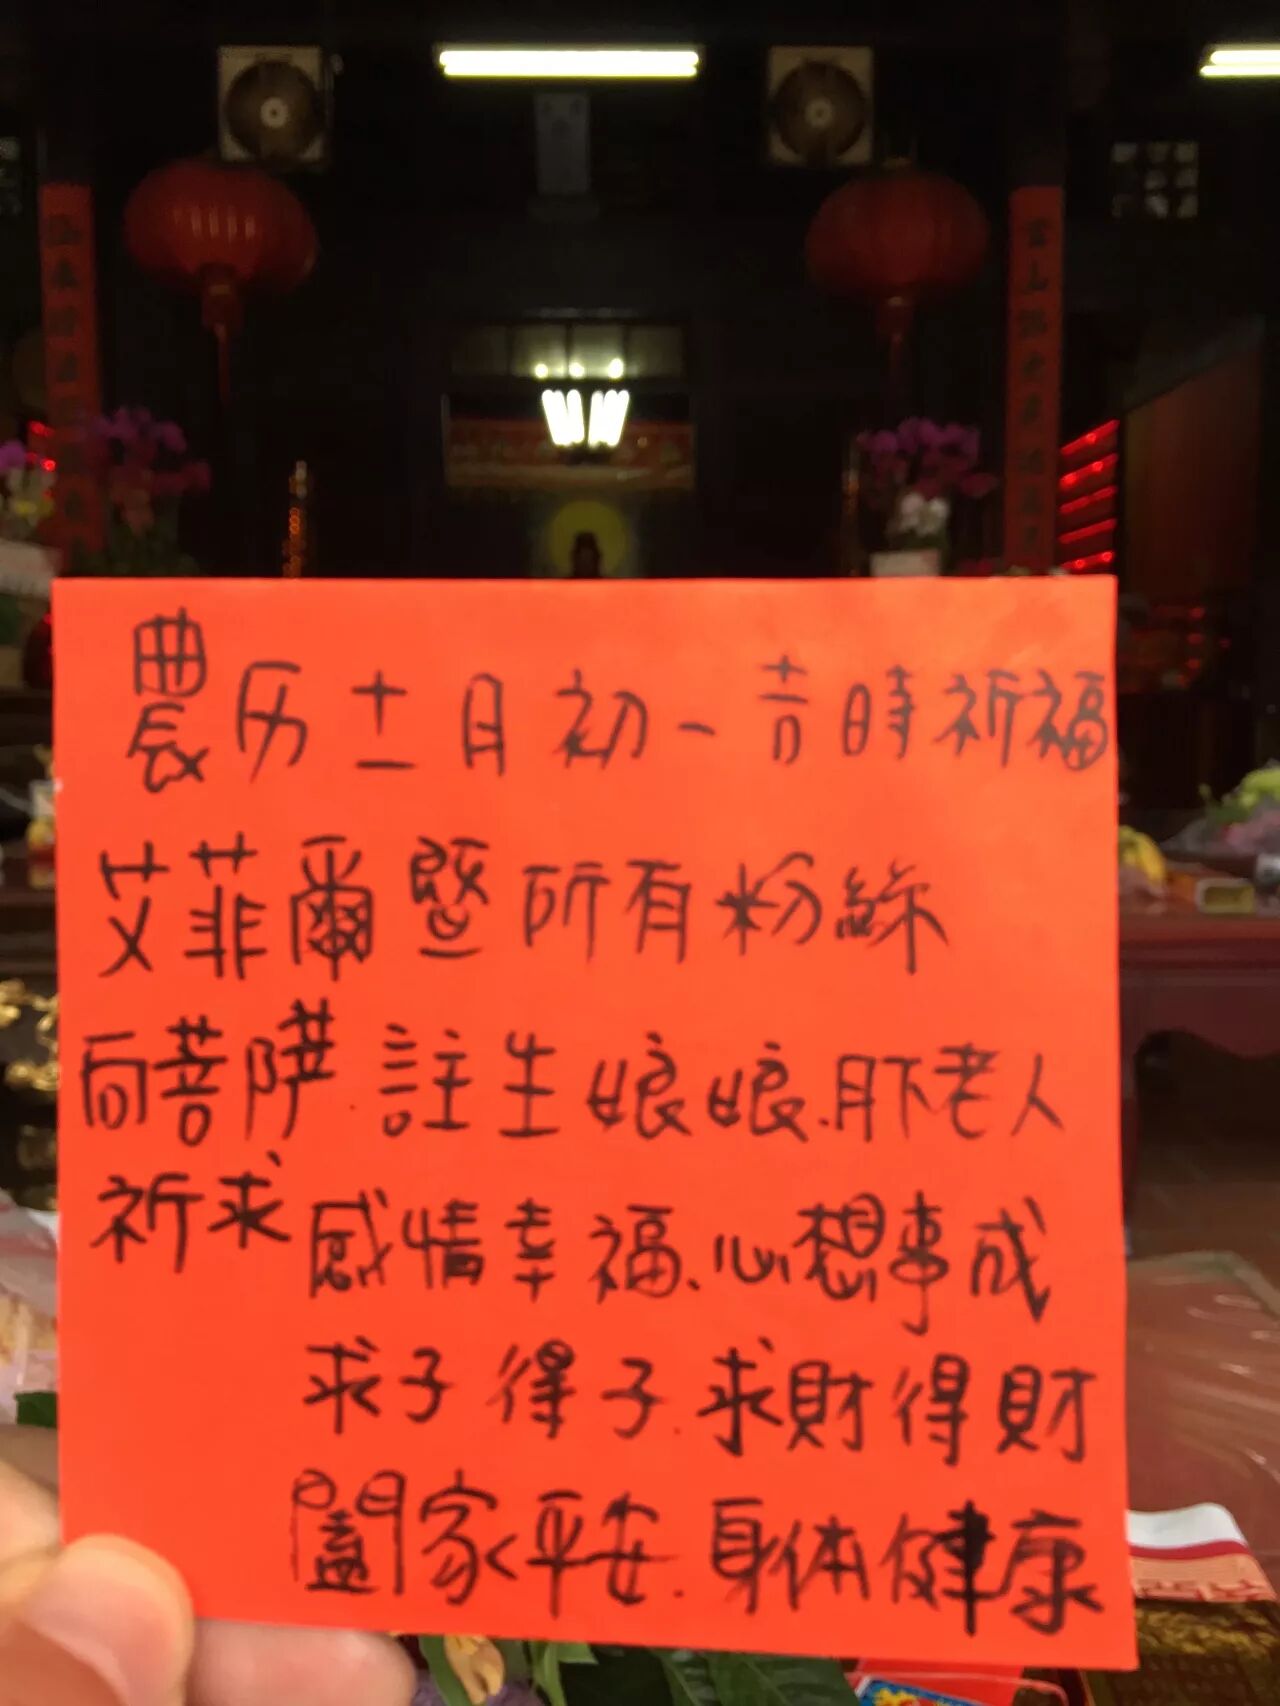 農历十一月初一吉時祈福
艾菲爾暨所有粉絲
向菩萨.註生娘娘.月下老人
祈求感情幸福、心想事成
求子得子.求財得財
闔家平安.身体健康